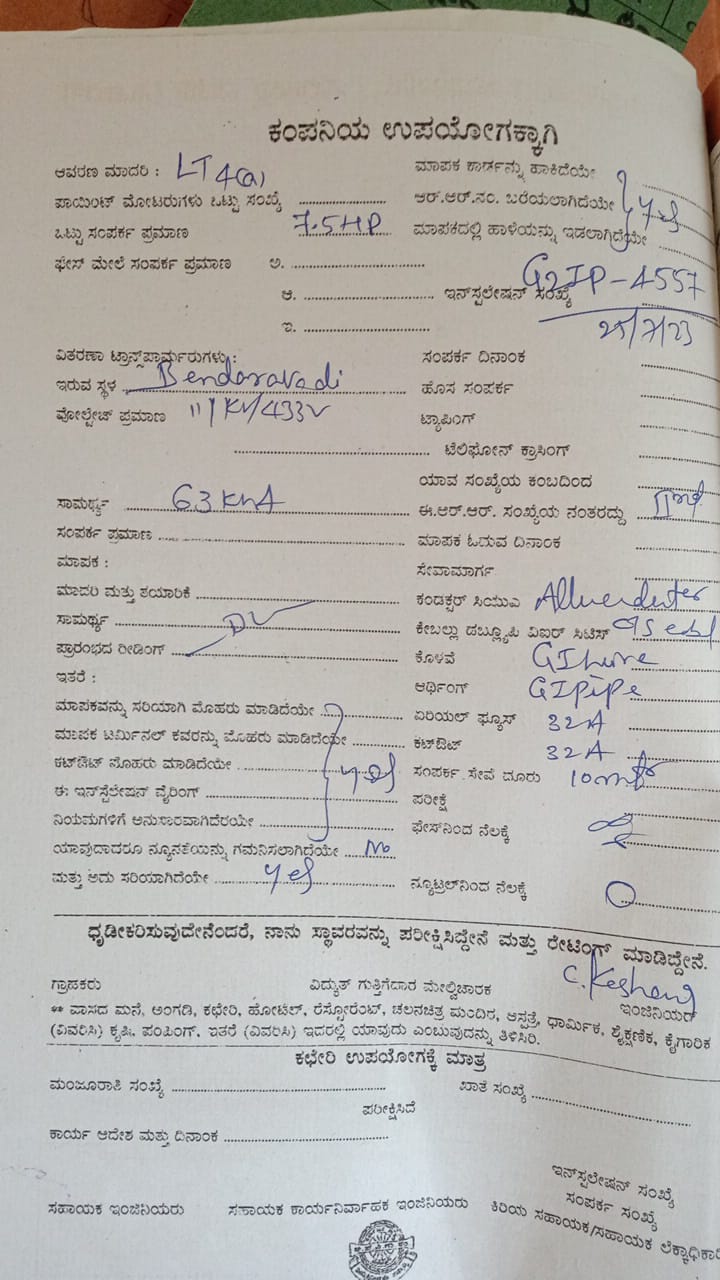 ಕಂಪನಿಯ ಉಪಯೋಗಕ್ಕಾಗಿ
ಆವರಣ ಮಾದರಿ : LT 4(a) ಮಾಪಕ ಕಾರ್ಡನ್ನು ಹಾಕಿದೆಯೇ
ಪಾಯಿಂಟ್ ಮೋಟರುಗಳು ಒಟ್ಟು ಸಂಖ್ಯೆ .................... ಆರ್.ಆರ್.ನಂ. ಬರೆಯಲಾಗಿದೆಯೇ yes
ಒಟ್ಟು ಸಂಪರ್ಕ ಪ್ರಮಾಣ 7.5HP ಮಾಪಕದಲ್ಲಿ ಹಾಳೆಯನ್ನು ಇಡಲಾಗಿದೆಯೇ
ಫೇಸ್ ಮೇಲೆ ಸಂಪರ್ಕ ಪ್ರಮಾಣ ಅ. ....................
ಆ. .................... ಇನ್‌ಸ್ಟಲೇಷನ್ ಸಂಖ್ಯೆ G2IP-4557
ಇ. .................... 25/7/23
ವಿತರಣಾ ಟ್ರಾನ್ಸ್‌ಫಾರ್ಮರುಗಳು : ಸಂಪರ್ಕ ದಿನಾಂಕ ....................
ಇರುವ ಸ್ಥಳ Bendaravadi ಹೊಸ ಸಂಪರ್ಕ ....................
ವೋಲ್ಟೇಜ್ ಪ್ರಮಾಣ 11 KV/433V ಟ್ಯಾಪಿಂಗ್ ....................
.................... ಟೆಲಿಫೋನ್ ಕ್ರಾಸಿಂಗ್ ....................
ಯಾವ ಸಂಖ್ಯೆಯ ಕಂಬದಿಂದ ....................
ಸಾಮರ್ಥ್ಯ 63 KVA ಈ.ಆರ್.ಆರ್. ಸಂಖ್ಯೆಯ ನಂತರದ್ದು
ಸಂಪರ್ಕ ಪ್ರಮಾಣ .................... ಮಾಪಕ ಓದುವ ದಿನಾಂಕ ....................
ಮಾಪಕ : ಸೇವಾಮಾರ್ಗ ....................
ಮಾದರಿ ಮತ್ತು ತಯಾರಿಕೆ .................... ಕಂಡಕ್ಟರ್ ಸಿಯುಎ
ಸಾಮರ್ಥ್ಯ .................... ಕೇಬಲ್ಲು ಡಬ್ಲ್ಯೂಪಿ ವಿಐರ್ ಸಿಟಿಸ್
ಪ್ರಾರಂಭದ ರೀಡಿಂಗ್ .................... ಕೊಳವೆ GI
ಇತರೆ : ಆರ್ಥಿಂಗ್ GI pipe
ಮಾಪಕವನ್ನು ಸರಿಯಾಗಿ ಮೊಹರು ಮಾಡಿದೆಯೇ ........ ಏರಿಯಲ್ ಫ್ಯೂಸ್ 32A
ಮಾಪಕ ಟರ್ಮಿನಲ್ ಕವರನ್ನು ಮೊಹರು ಮಾಡಿದೆಯೇ ........ ಕಟ್‌ಔಟ್ 32A
ಕಟ್‌ಔಟ್ ಮೊಹರು ಮಾಡಿದೆಯೇ .................... yes ಸಂಪರ್ಕ ಸೇವೆ ದೂರು 10mtr
ಈ ಇನ್‌ಸ್ಟಲೇಷನ್ ವೈರಿಂಗ್ .................... ಪರೀಕ್ಷೆ
ನಿಯಮಗಳಿಗೆ ಅನುಸಾರವಾಗಿದೆರಯೇ .................... ಫೇಸ್‌ನಿಂದ ನೆಲಕ್ಕೆ
ಯಾವುದಾದರೂ ನ್ಯೂನತೆಯನ್ನು ಗಮನಿಸಲಾಗಿದೆಯೇ No
ಮತ್ತು ಅದು ಸರಿಯಾಗಿದೆಯೇ yes ನ್ಯೂಟ್ರಲ್‌ನಿಂದ ನೆಲಕ್ಕೆ 0
ಧೃಡೀಕರಿಸುವುದೇನೆಂದರೆ, ನಾನು ಸ್ಥಾವರವನ್ನು ಪರೀಕ್ಷಿಸಿದ್ದೇನೆ ಮತ್ತು ರೇಟಿಂಗ್ ಮಾಡಿದ್ದೇನೆ.
ಗ್ರಾಹಕರು ವಿದ್ಯುತ್ ಗುತ್ತಿಗೆದಾರ ಮೇಲ್ವಿಚಾರಕ ಇಂಜಿನಿಯರ್
** ವಾಸದ ಮನೆ, ಅಂಗಡಿ, ಕಛೇರಿ, ಹೋಟೆಲ್, ರೆಸ್ಟೋರೆಂಟ್, ಚಲನಚಿತ್ರ ಮಂದಿರ, ಆಸ್ಪತ್ರೆ, ಧಾರ್ಮಿಕ, ಶೈಕ್ಷಣಿಕ, ಕೈಗಾರಿಕ
(ವಿವರಿಸಿ) ಕೃಷಿ, ಪಂಪಿಂಗ್, ಇತರೆ (ವಿವರಿಸಿ) ಇದರಲ್ಲಿ ಯಾವುದು ಎಂಬುವುದನ್ನು ತಿಳಿಸಿರಿ.
ಕಛೇರಿ ಉಪಯೋಗಕ್ಕೆ ಮಾತ್ರ
ಮಂಜೂರಾತಿ ಸಂಖ್ಯೆ .................... ಖಾತೆ ಸಂಖ್ಯೆ ....................
ಪರೀಕ್ಷಿಸಿದೆ
ಕಾರ್ಯ ಆದೇಶ ಮತ್ತು ದಿನಾಂಕ ....................
ಇನ್‌ಸ್ಟಲೇಷನ್ ಸಂಖ್ಯೆ
ಸಂಪರ್ಕ ಸಂಖ್ಯೆ
ಸಹಾಯಕ ಇಂಜಿನಿಯರು ಸಹಾಯಕ ಕಾರ್ಯನಿರ್ವಾಹಕ ಇಂಜಿನಿಯರು ಕಿರಿಯ ಸಹಾಯಕ/ಸಹಾಯಕ ಲೆಕ್ಕಾಧಿಕಾರಿ